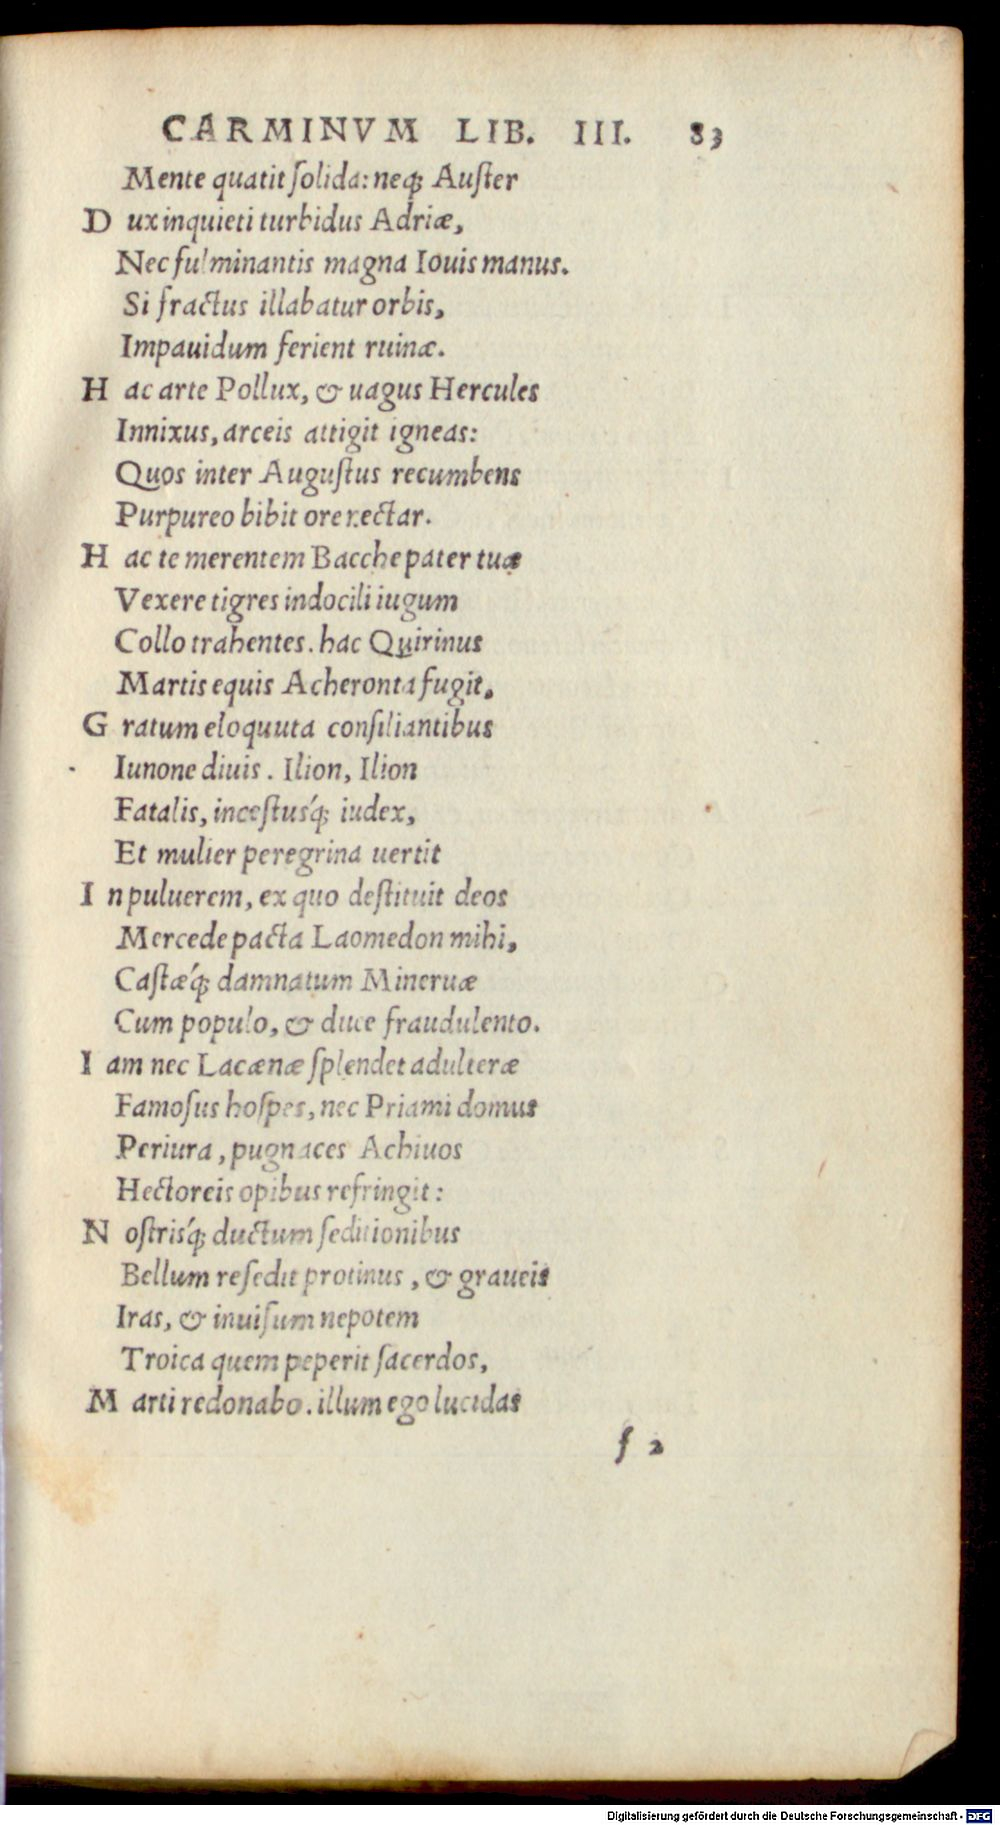 CARMINVM LIB. III. 83
Mente quatit ſolida: neq; Auſter
D ux inquieti turbidus Adriæ,
Nec fulminantis magna Iouis manus.
Si fractus illabatur orbis,
Impauidum ferient ruinæ.
H ac arte Pollux, & uagus Hercules
Innixus, arceis attigit igneas:
Quos inter Auguſtus recumbens
Purpureo bibit ore nectar.
H ac te merentem Bacche pater tuæ
Vexere tigres indocili iugum
Collo trahentes. hac Quirinus
Martis equis Acheronta fugit.
G ratum eloquuta conſiliantibus
Iunone diuis. Ilion, Ilion
Fatalis, inceſtusq́; iudex,
Et mulier peregrina uertit
I n puluerem, ex quo deſtituit deos
Mercede pacta Laomedon mihi,
Caſtæq́; damnatum Mineruæ
Cum populo, & duce fraudulento.
I am nec Lacænæ ſplendet adulteræ
Famoſus hoſpes, nec Priami domus
Periura, pugnaces Achiuos
Hectoreis opibus refringit:
N oſtrisq́; ductum ſeditionibus
Bellum reſedit protinus, & graueis
Iras, & inuiſum nepotem
Troica quem peperit ſacerdos,
M arti redonabo. illum ego lucidas
f 2
Digitalisierung gefördert durch die Deutsche Forschungsgemeinschaft - DFG